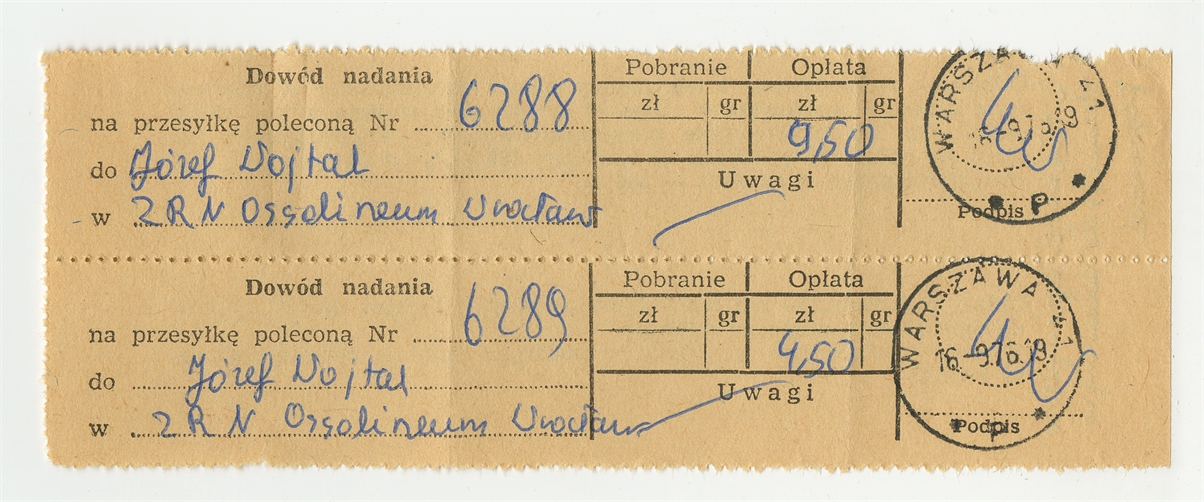 Dowód nadania
na przesyłkę poleconą Nr 6288
do Józef Wojtal
w ZRN Ossolineum Wrocław
Pobranie Opłata
zł gr zł gr
9,50
Uwagi
WARSZAWA 21
Podpis
P
Dowód nadania
na przesyłkę poleconą Nr 6289
do Józef Wojtal
w ZRN Ossolineum Wrocław
Pobranie Opłata
zł gr zł gr
4,50
Uwagi
WARSZAWA 21
16-9.76.19
Podpis
P